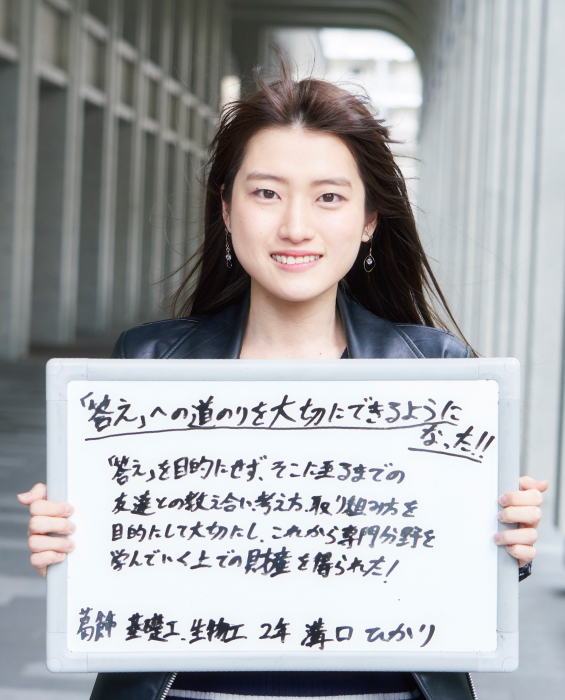 「答え」への道のりを大切にできるように
なった!!
「答え」を目的にせず、そこに至るまでの
友達との教え合い考え方、取り組み方を
目的にして大切にし、これから専門分野を
学んでいく上での財産を得られた!
葛飾 基礎工.生物工 2年 溝口 ひかり